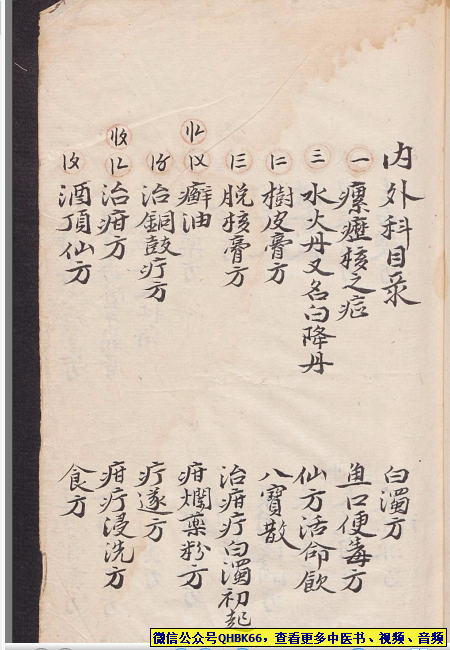 内外科目录
一 瘰癧核之症
三 水火丹又名白降丹
樹皮膏方
脱核膏方
癬油
治銅鼓疔方
治疳方
酒頂仙方
白濁方
魚口便毒方
仙方活命飲
八寶散
治疳疔白濁初起
疳爛藥粉方
疔遂方
疳疔浸洗方
食方
微信公众号QHBK66，查看更多中医书、视频、音频